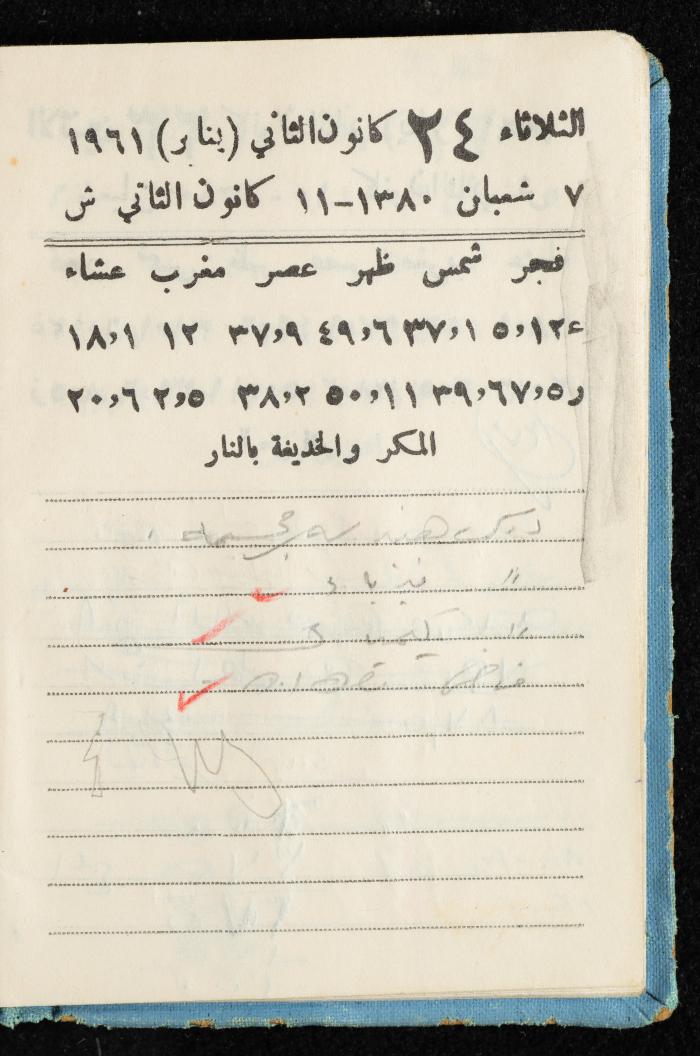 الثلاثاء ٢٤ كانون الثاني (يناير) ١٩٦١
٧ شعبان ١٣٨٠-١١ كانون الثاني ش
فجر شمس ظهر عصر مغرب عشاء
ع ١٢،٥ ١،٣٧ ٦،٤٩ ٩،٣٧ ١٢ ١،١٨
ز ٥،٧ ٦،٣٩ ١١،٥٠ ٢،٣٨ ٥،٢ ٦،٢٠
المكر والخديعة بالنار
〃 فيزياء
〃 كيمياء